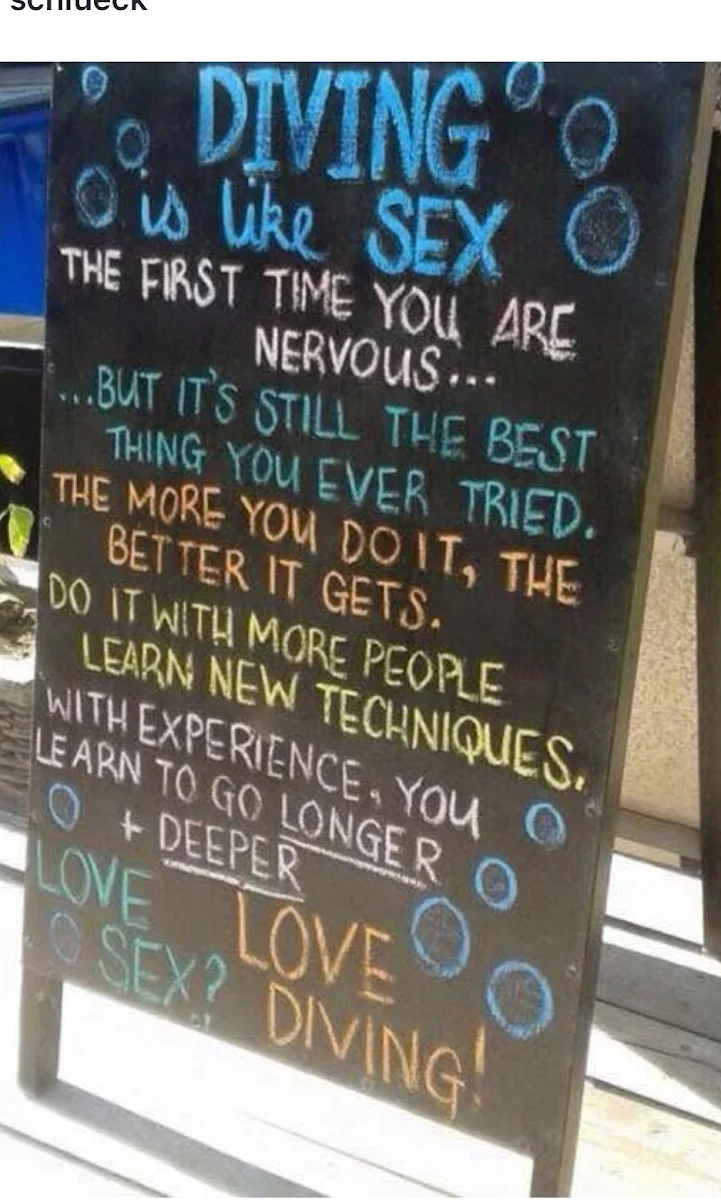 DIVING
is like SEX
THE FIRST TIME YOU ARE
NERVOUS...
...BUT IT'S STILL THE BEST
THING YOU EVER TRIED.
THE MORE YOU DO IT, THE
BETTER IT GETS.
DO IT WITH MORE PEOPLE
LEARN NEW TECHNIQUES.
WITH EXPERIENCE, YOU
LEARN TO GO LONGER
+ DEEPER
LOVE
SEX?
LOVE
DIVING!